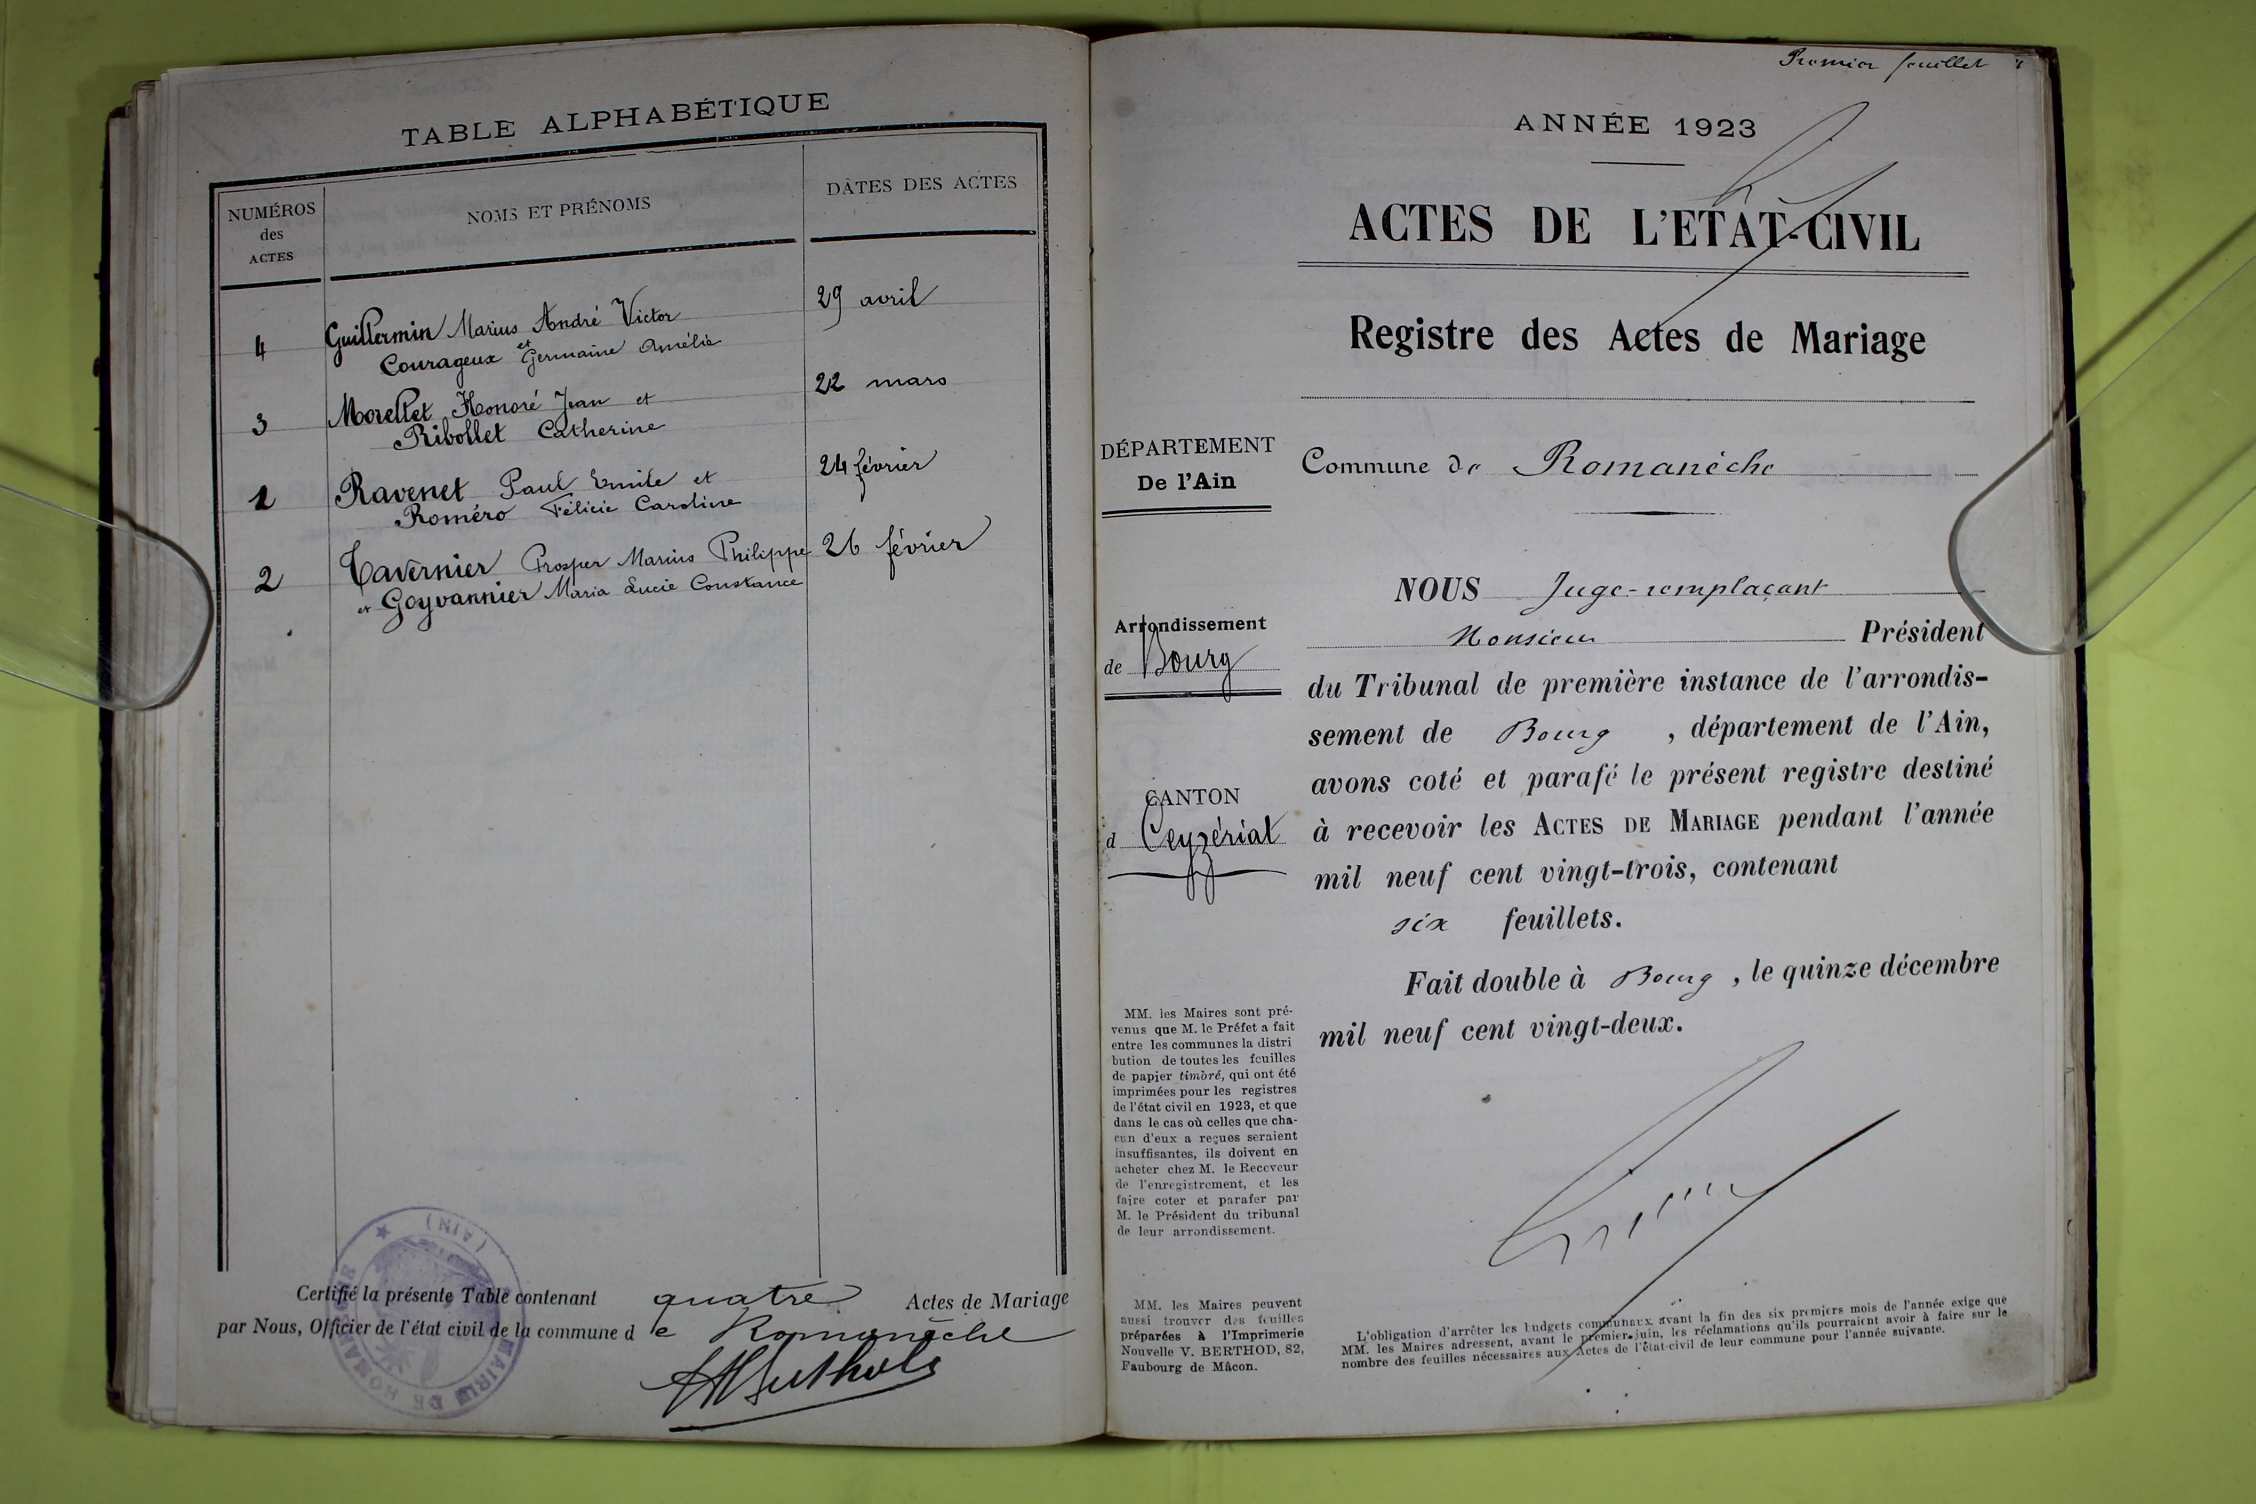 TABLE ALPHABÉTIQUE
NUMÉROS
des
ACTES
NOMS ET PRÉNOMS
DATES DES ACTES
4 Guillermin Marius André Victor 29 avril
et
Courageux Germaine Amélie
3 Morellet Honoré Jean et 22 mars
Ribollet Catherine
1 Ravenet Paul Emile et 24 février
Roméro Félicie Caroline
2 Tavernier Prosper Marius Philippe 26 février
et Goyvannier Maria Lucie Constance
Certifié la présente Table contenant quatre Actes de Mariage
par Nous, Officier de l'état civil de la commune de Romanèche
MAIRIE DE ROMANÈCHE (AIN)
Premier feuillet
ANNÉE 1923
ACTES DE L'ETAT-CIVIL
Registre des Actes de Mariage
DÉPARTEMENT
De l'Ain
Commune de Romanèche
Arrondissement
de Bourg
CANTON
d Ceyzériat
NOUS Juge-remplaçant
Monsieur Président
du Tribunal de première instance de l'arrondis-
sement de Bourg, département de l'Ain,
avons coté et parafé le présent registre destiné
à recevoir les ACTES DE MARIAGE pendant l'année
mil neuf cent vingt-trois, contenant
six feuillets.
Fait double à Bourg, le quinze décembre
mil neuf cent vingt-deux.
MM. les Maires sont pré-
venus que M. le Préfet a fait
entre les communes la distri
bution de toutes les feuilles
de papier timbré, qui ont été
imprimées pour les registres
de l'état civil en 1923, et que
dans le cas où celles que cha-
cun d'eux a reçues seraient
insuffisantes, ils doivent en
acheter chez M. le Receveur
de l'enregistrement, et les
faire coter et parafer par
M. le Président du tribunal
de leur arrondissement.
MM. les Maires peuvent
aussi trouver des feuilles
préparées à l'Imprimerie
Nouvelle V. BERTHOD, 82,
Faubourg de Mâcon.
L'obligation d'arrêter les budgets communaux avant la fin des six premiers mois de l'année exige que
MM. les Maires adressent, avant le premier juin, les réclamations qu'ils pourraient avoir à faire sur le
nombre des feuilles nécessaires aux Actes de l'état-civil de leur commune pour l'année suivante.